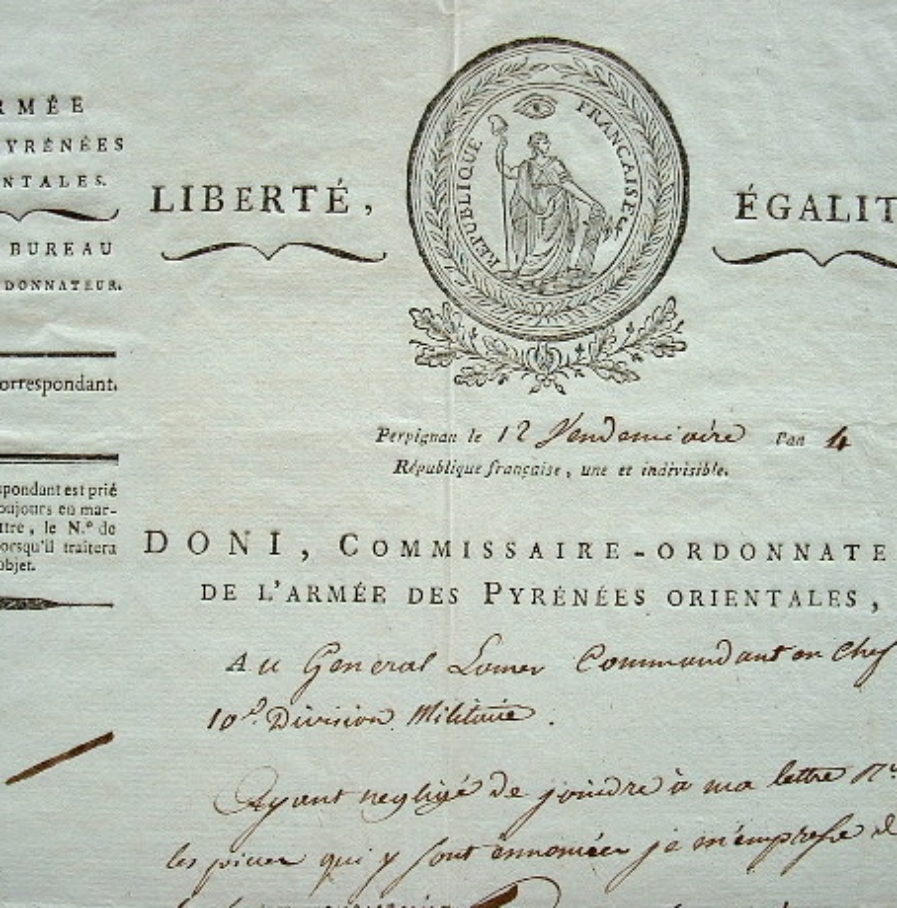 RMÉE
YRÉNÉES
NTALES.
BUREAU
DONNATEUR.
orrespondant.
spondant est prié
oujours en mar-
ttre, le N.º de
lorsqu'il traitera
objet.
LIBERTÉ,
RÉPUBLIQUE FRANÇAISE
ÉGALIT
Perpignan le 12 Vendemiaire l'an 4
République française, une et indivisible.
DONI, COMMISSAIRE-ORDONNATE
DE L'ARMÉE DES PYRÉNÉES ORIENTALES,
Au General Lamer Commandant en Chef
10e Division Militaire.
Ayant negligé de joindre à ma lettre n.º
les pieces qui y sont énnoncées je m'empresse d